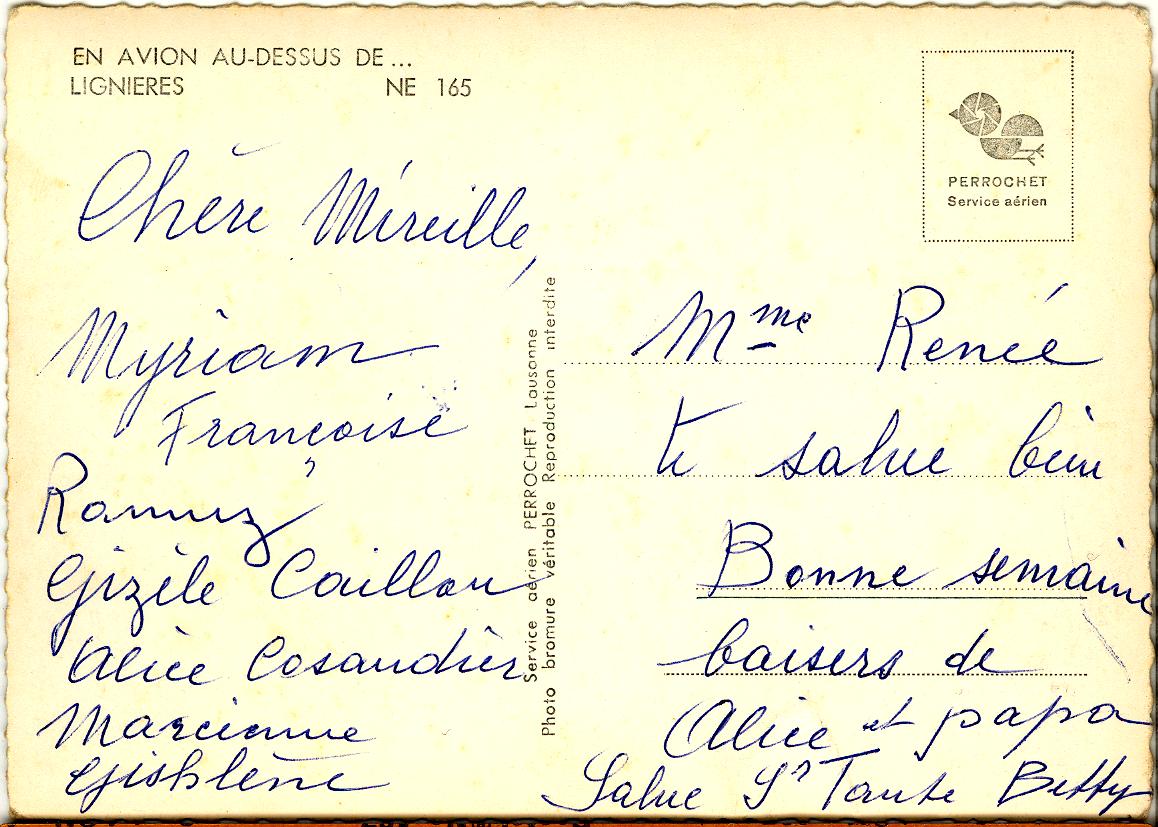 EN AVION AU-DESSUS DE...
LIGNIERES NE 165
Chère Mireille,
Myriam
Françoise
Ramuz
Gizèle Caillou
Alice Cosandier
Marcienne
Gishlène
Service aérien PERROCHET Lausanne
Photo bromure véritable Reproduction interdite
PERROCHET
Service aérien
Mme Renée
te salue bien
Bonne semaine
baisers de
Alice et papa
Salue Tante Betty